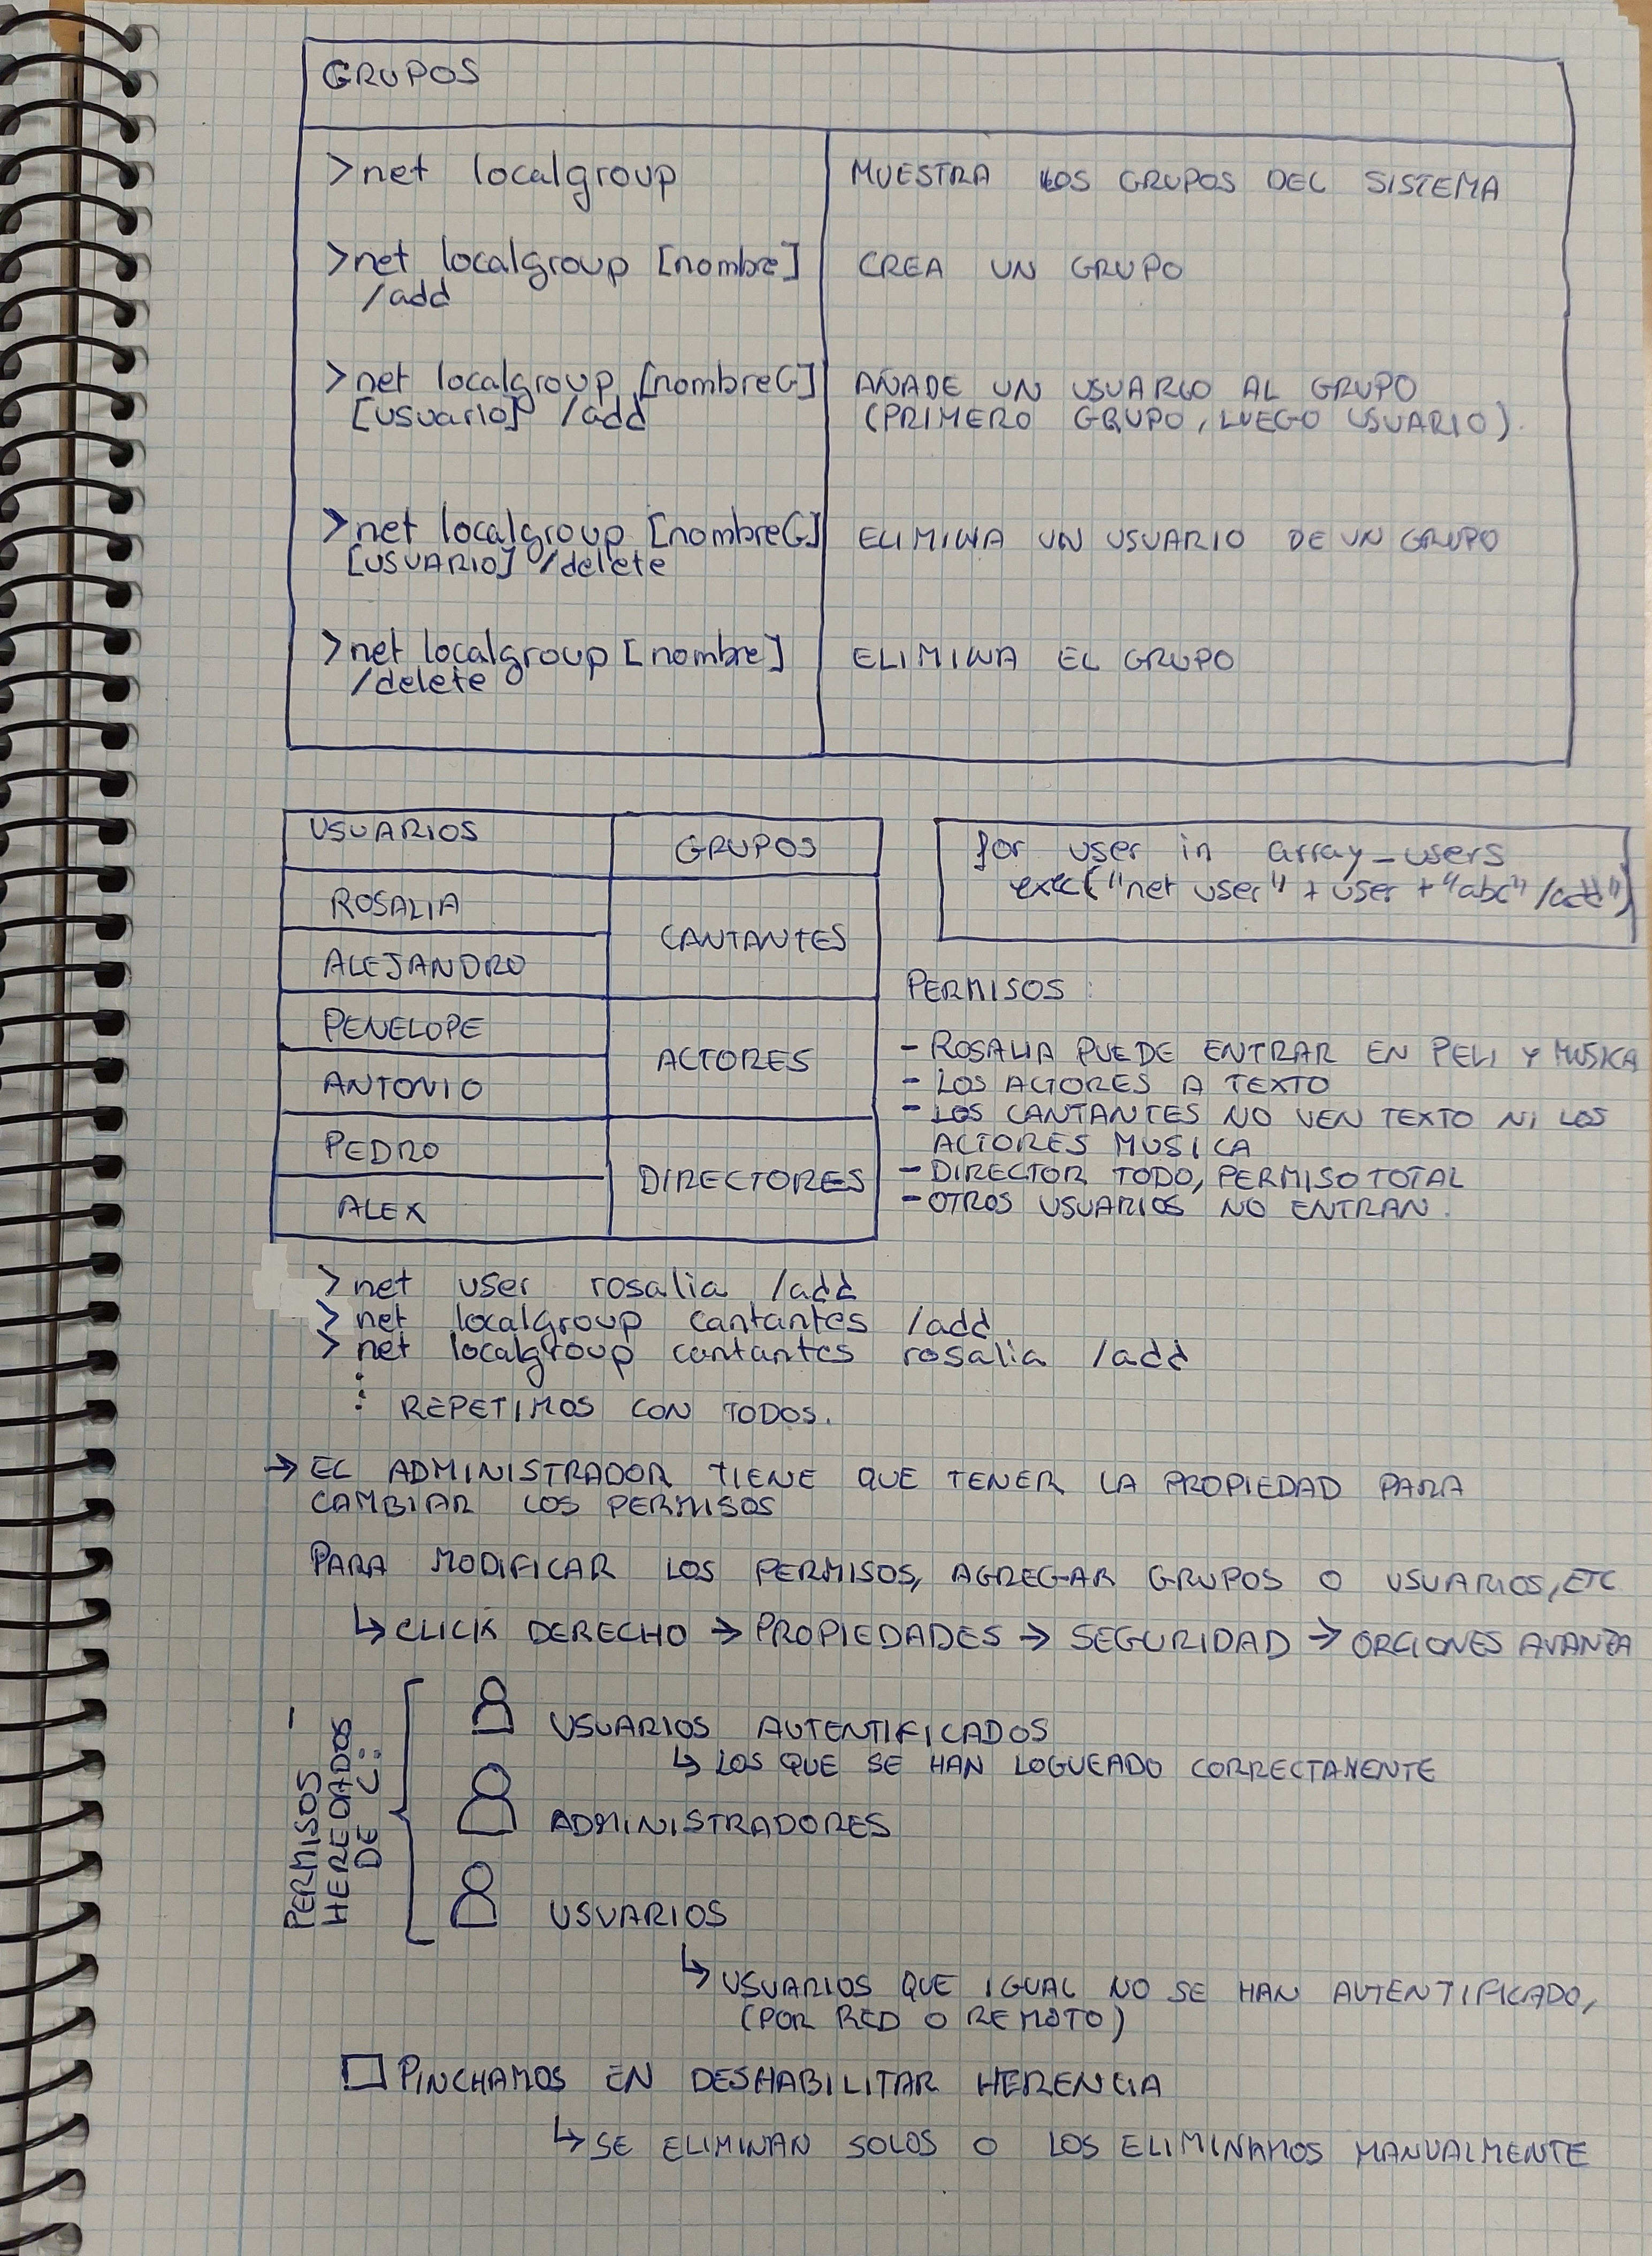 GRUPOS
>net localgroup
MUESTRA LOS GRUPOS DEL SISTEMA
>net localgroup [nombre]
/add
CREA UN GRUPO
>net localgroup [nombreG]
[usuario] /add
AÑADE UN USUARIO AL GRUPO
(PRIMERO GRUPO, LUEGO USUARIO).
>net localgroup [nombreG]
[USUARIO] /delete
ELIMINA UN USUARIO DE UN GRUPO
>net localgroup [nombre]
/delete
ELIMINA EL GRUPO
USUARIOS
GRUPOS
ROSALIA
ALEJANDRO
CANTANTES
PENELOPE
ANTONIO
ACTORES
PEDRO
ALEX
DIRECTORES
for user in array_users
exec("net user" + user + "abc" /add")
PERMISOS:
- ROSALIA PUEDE ENTRAR EN PELI Y MUSICA
- LOS ACTORES A TEXTO
- LOS CANTANTES NO VEN TEXTO NI LOS
ACTORES MUSICA
- DIRECTOR TODO, PERMISO TOTAL
- OTROS USUARIOS NO ENTRAN.
> net user rosalia /add
> net localgroup cantantes /add
> net localgroup cantantes rosalia /add
⋮ REPETIMOS CON TODOS.
→ EL ADMINISTRADOR TIENE QUE TENER LA PROPIEDAD PARA
CAMBIAR LOS PERMISOS
PARA MODIFICAR LOS PERMISOS, AGREGAR GRUPOS O USUARIOS, ETC
↳ CLICK DERECHO → PROPIEDADES → SEGURIDAD → OPCIONES AVANZA
PERMISOS
HEREDADOS
DE C:
USUARIOS AUTENTIFICADOS
↳ LOS QUE SE HAN LOGUEADO CORRECTAMENTE
ADMINISTRADORES
USUARIOS
↳ USUARIOS QUE IGUAL NO SE HAN AUTENTIFICADO,
(POR RED O REMOTO)
□ PINCHAMOS EN DESHABILITAR HERENCIA
↳ SE ELIMINAN SOLOS O LOS ELIMINAMOS MANUALMENTE